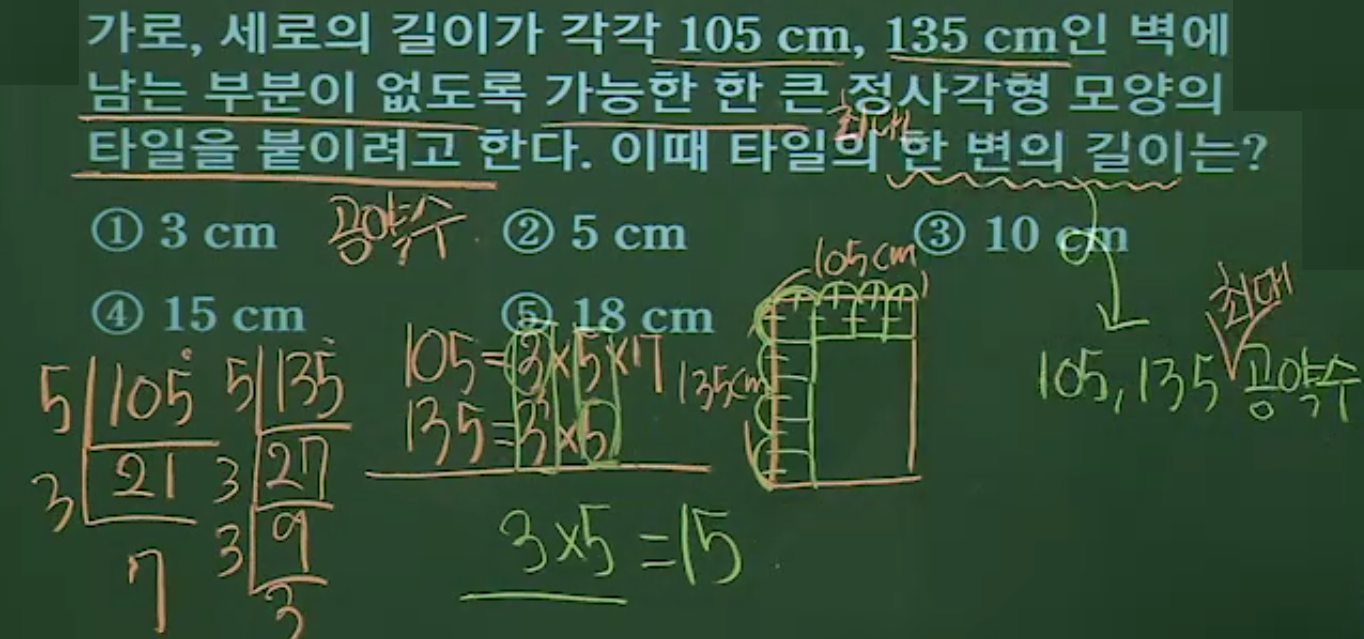 가로, 세로의 길이가 각각 105 cm, 135 cm인 벽에
남는 부분이 없도록 가능한 한 큰 정사각형 모양의
최대
타일을 붙이려고 한다. 이때 타일의 한 변의 길이는?
① 3 cm 공약수 ② 5 cm ③ 10 cm
④ 15 cm ⑤ 18 cm
105cm
135cm
최대
105, 135 공약수
5 105
3 21
7
5 135
3 27
3 9
3
105=3×5×7
135=3³×5
3×5=15